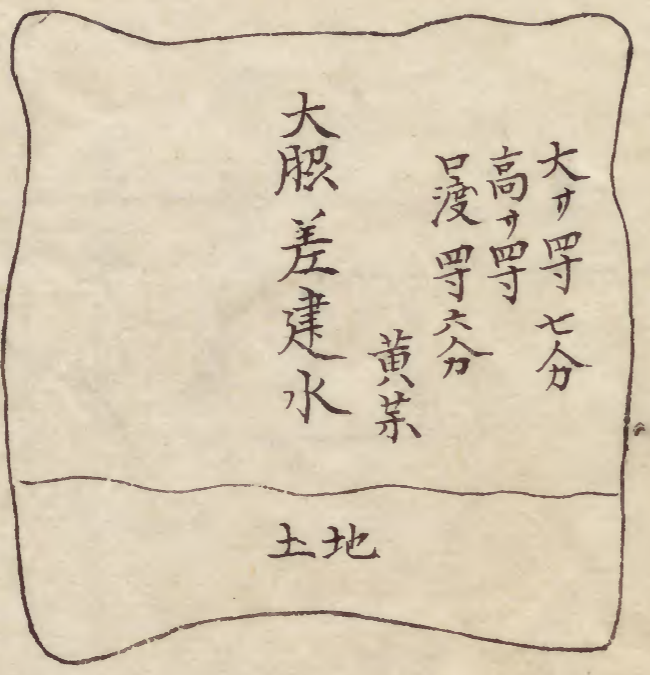 大サ四寸七分
高サ四寸
口渡四寸六分
黄薬
大脇差建水
土地